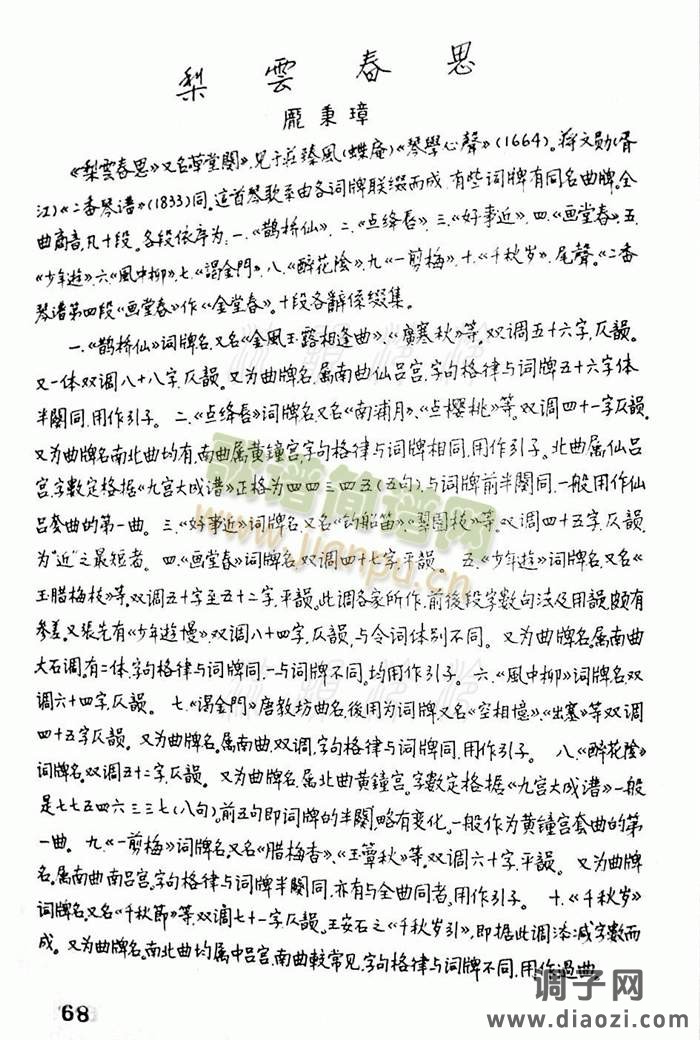 梨雲春思
龎秉璋
《梨雲春思》又名草堂関》,見于莊臻風(蝶庵)《琴學心聲》(1664)。蔣文勋(胥
江)《二香琴谱》(1833)同。这首琴歌系由各词牌联缀而成,有些词牌有同名曲牌。全
曲商音,凡十段。各段依序为:一.《鹊桥仙》,二.《点绛唇》,三.《好事近》,四.《画堂春》,五.
《少年遊》,六.《風中柳》,七.《謁金門》,八.《醉花陰》,九.《一剪梅》,十.《千秋岁》,尾聲。《二香
琴谱第四段《画堂春》作《金堂春》。十段各辭係缀集。
一.《鹊桥仙》词牌名,又名《金風玉露相逢曲》、《廣寒秋》等。双调五十六字,仄韻。
又一体双调八十八字,仄韻。又为曲牌名,属南曲仙吕宫,字句格律与词牌五十六字体
半闋同,用作引子。二.《点绛唇》词牌名又名《南浦月》、《点樱桃》等。双调四十一字仄韻。
又为曲牌名,南北曲均有,南曲属黄鐘宫,字句格律与词牌相同,用作引子。北曲属仙吕
宫,字數定格据《九宫大成谱》正格为四四三四五(五句),与词牌前半闋同,一般用作仙
吕套曲的第一曲。三.《好事近》词牌名又名《钓船笛》、《翠園枝》等。双调四十五字,仄韻,
为"近"之最短者。四.《画堂春》词牌名,双调四十七字,平韻。五.《少年遊》词牌名,又名《
玉腊梅枝》等,双调五十字至五十二字,平韻。此调各家所作,前後段字數句法及用韻,颇有
参差。又張先有《少年遊慢》,双调八十四字,仄韻,与令词体别不同。又为曲牌名,属南曲
大石调,有二体,字句格律与词牌同,一与词牌不同。均用作引子。六.《風中柳》词牌名双
调六十四字,仄韻。七.《謁金門》唐教坊曲名,後用为词牌,又名《空相憶》、《出塞》等双调
四十五字仄韻。又为曲牌名,属南曲,双调,字句格律与词牌同,用作引子。八.《醉花陰》
词牌名。双调五十二字,仄韻。又为曲牌名,属北曲黄鐘宫。字數定格据《九宫大成谱》一般
是七七五四六三三七(八句)。前五句即词牌的半闋,略有变化。一般作为黄鐘宫套曲的第
一曲。九.《一剪梅》词牌名。又名《腊梅香》、《玉簟秋》等。双调六十字,平韻。又为曲牌
名。属南曲南吕宫。字句格律与词牌半闋同,亦有与全曲同者。用作引子。十.《千秋岁》
词牌名又名《千秋節》等,双调七十一字仄韻。王安石之《千秋岁引》,即据此调添减字數而
成。又为曲牌名,南北曲均属中吕宫,南曲較常見,字句格律与词牌不同,用作過曲。
68
歌谱简谱网
www.jianpu.cn
调子网
www.diaozi.com